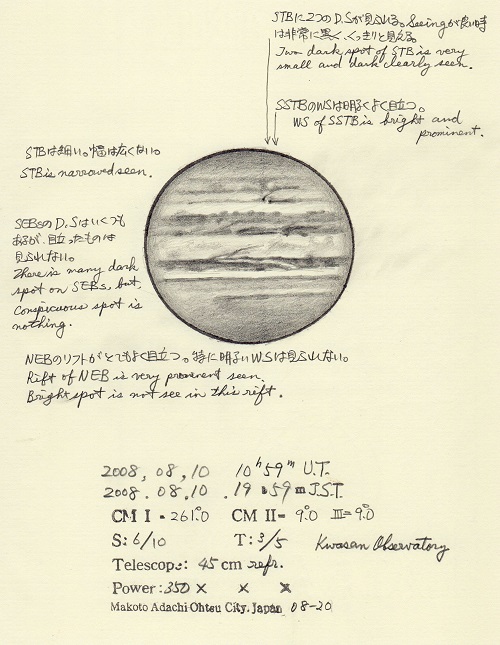 STBに2つのD.Sが見られる。Seeingが良い時
は非常に黒く、くっきりと見える。
Two dark spot of STB is very
small and dark clearly seen.
SSTBのWSは明るくよく目立つ。
WS of SSTB is bright and
prominent.
STBは細い。幅は広くない。
STB is narrowed seen.
SEBsのD.Sはいくつも
あるが、目立ったものは
見られない。
There is many dark
spot on SEBs, but,
conspicuous spot is
nothing.
NEBのリフトがとてもよく目立つ。特に明るいWSは見られない。
Rift of NEB is very prominent seen.
Bright spot is not see in this rift.
2008, 08, 10 10h 59m U.T.
2008. 08. 10 . 19 h 59 m J.S.T.
CM I = 261.0° CM II= 9.0° III= 9.0°
S: 6/10 T: 3/5 Kwasan Observatory
Telescope: 45 cm refr.
Power: 350 × × ×
Makoto Adachi Ohtsu City. Japan 08-20